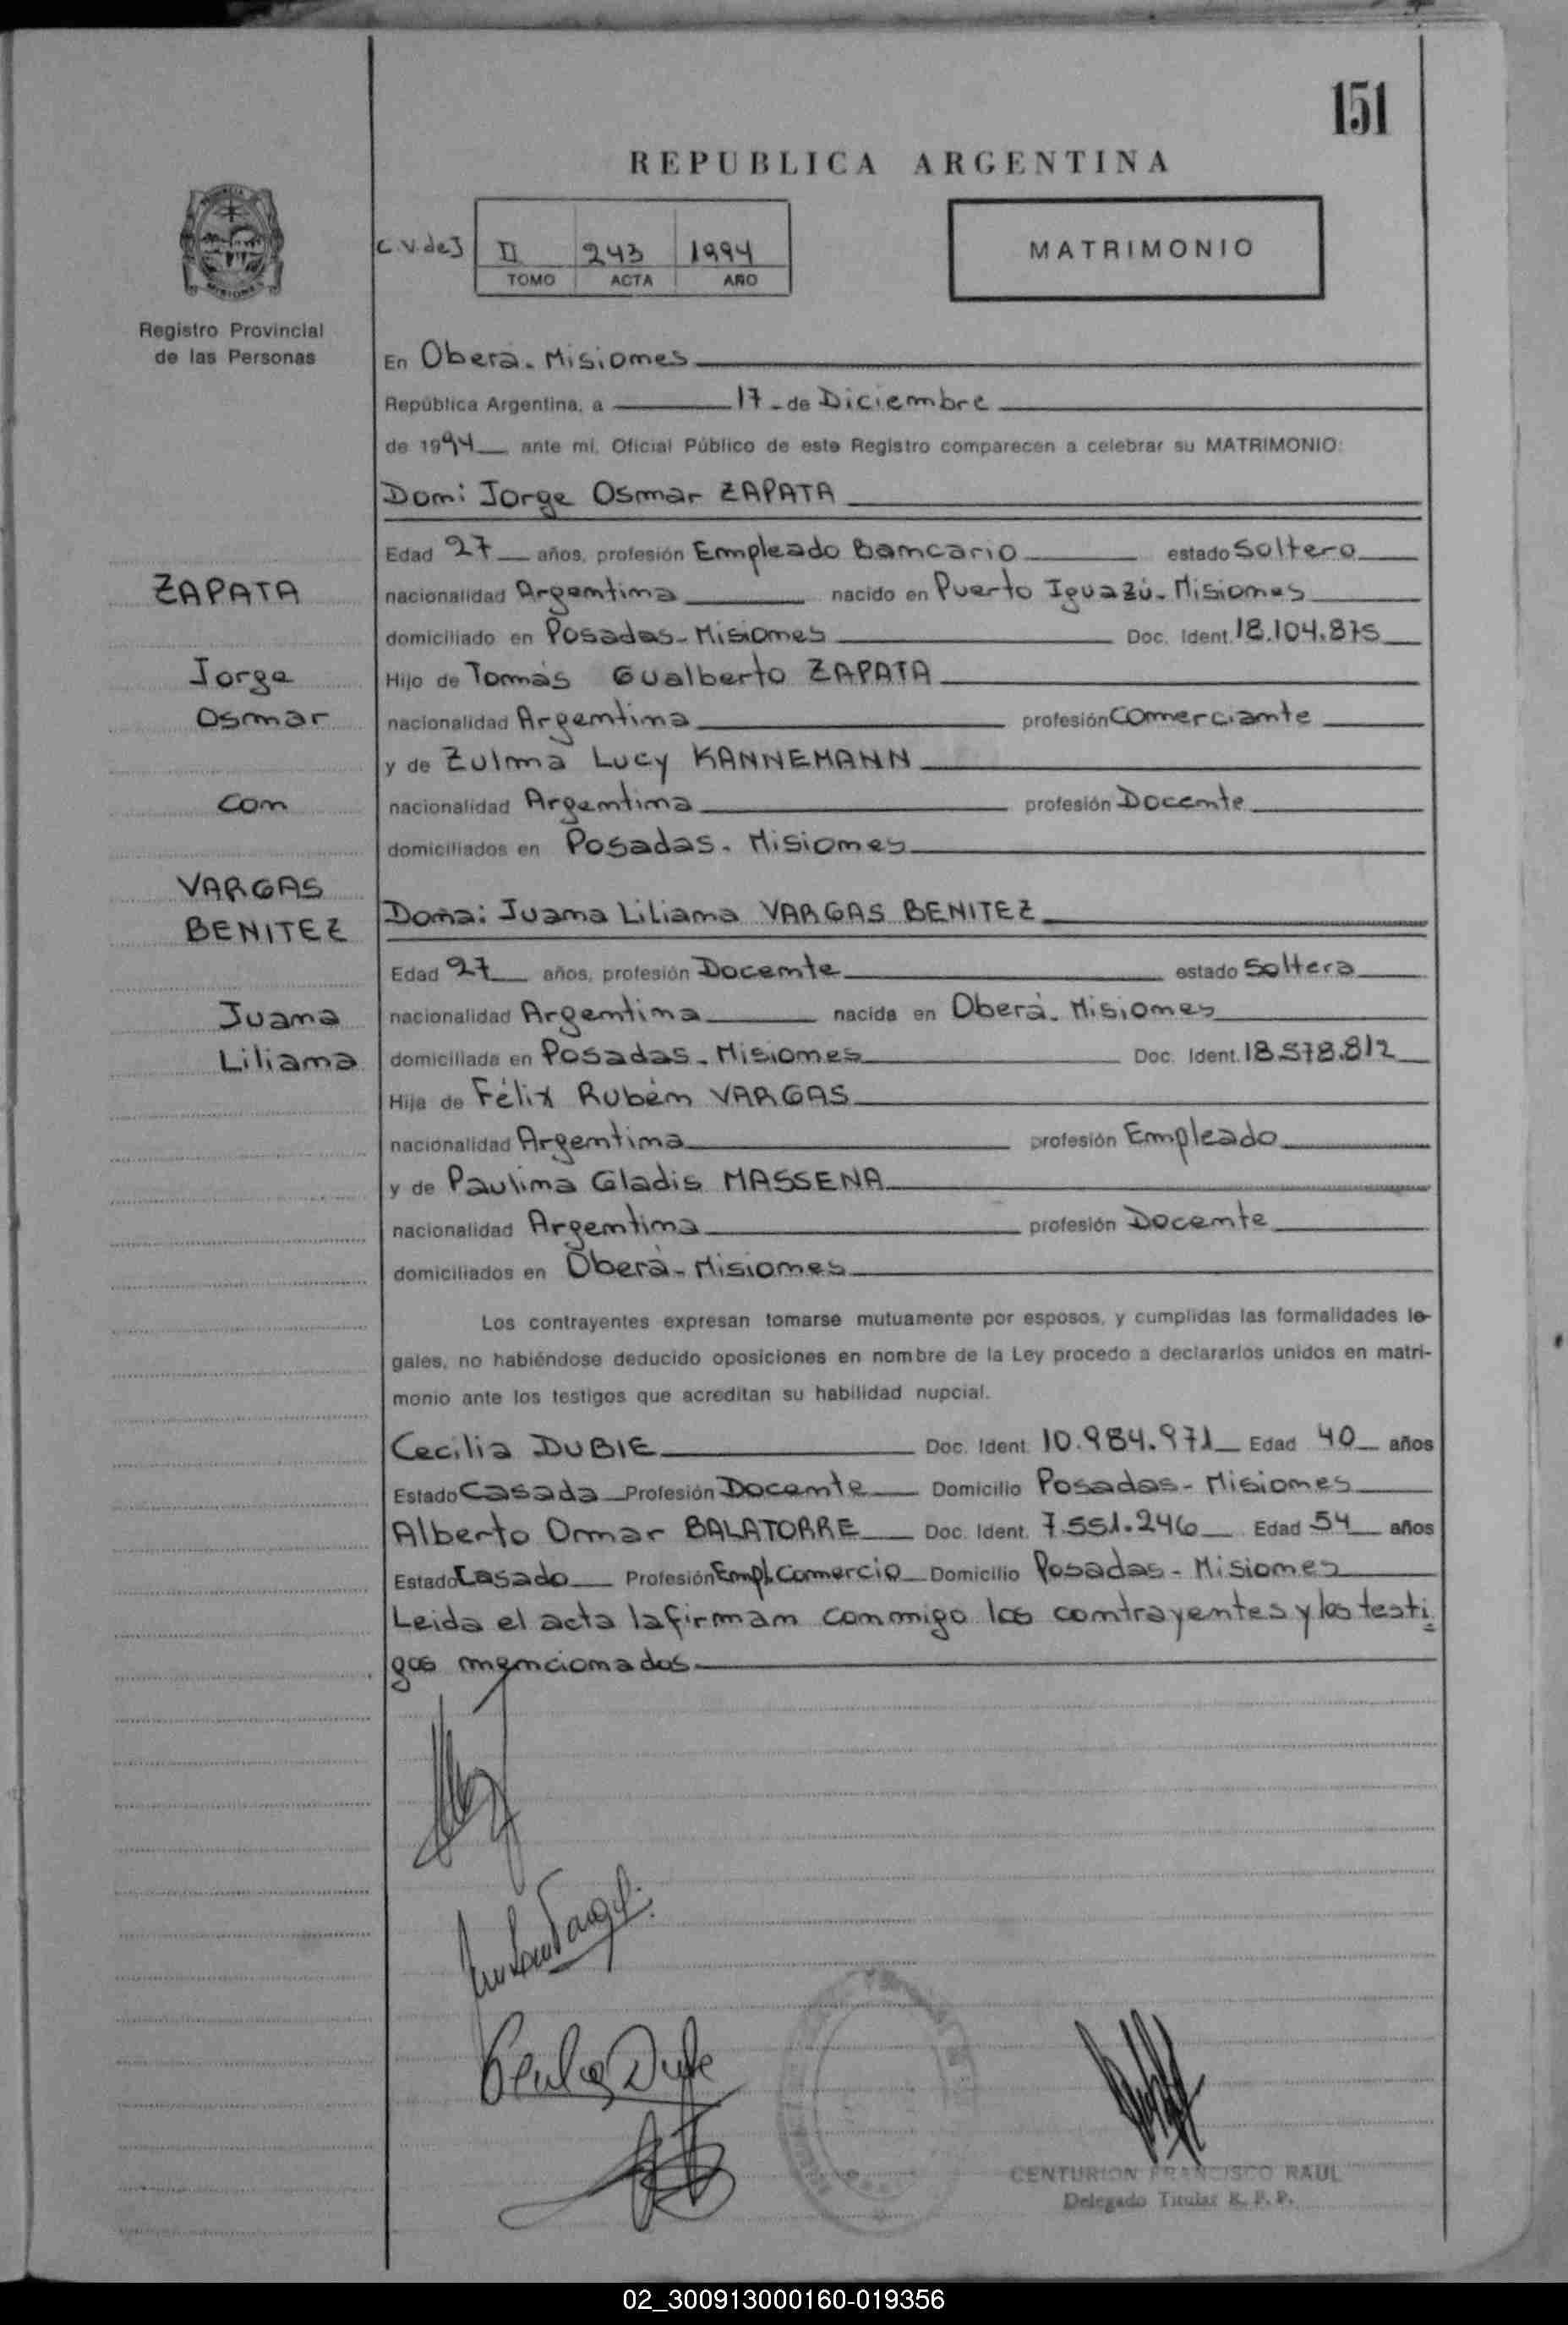 151
REPUBLICA ARGENTINA
C.V. de J
II 243 1994
TOMO ACTA AÑO
MATRIMONIO
Registro Provincial
de las Personas
En Oberá - Misiones
República Argentina, a 17 - de Diciembre
de 1994 ante mí, Oficial Público de este Registro comparecen a celebrar su MATRIMONIO:
Don: Jorge Osmar ZAPATA
Edad 27 años, profesión Empleado bancario estado Soltero
ZAPATA
nacionalidad Argentina nacido en Puerto Iguazú - Misiones
domiciliado en Posadas - Misiones Doc. Ident. 18.104.875
Jorge
Hijo de Tomás Gualberto ZAPATA
Osmar
nacionalidad Argentina profesión Comerciante
y de Zulma Lucy KANNEMANN
con
nacionalidad Argentina profesión Docente
domiciliados en Posadas - Misiones
VARGAS
BENITEZ
Doña: Juana Liliana VARGAS BENITEZ
Edad 27 años, profesión Docente estado Soltera
Juana
nacionalidad Argentina nacida en Oberá - Misiones
Liliana
domiciliada en Posadas - Misiones Doc. Ident. 18.578.812
Hija de Félix Rubén VARGAS
nacionalidad Argentina profesión Empleado
y de Paulina Gladis MASSENA
nacionalidad Argentina profesión Docente
domiciliados en Oberá - Misiones
Los contrayentes expresan tomarse mutuamente por esposos, y cumplidas las formalidades le-
gales, no habiéndose deducido oposiciones en nombre de la Ley procedo a declararlos unidos en matri-
monio ante los testigos que acreditan su habilidad nupcial.
Cecilia DUBIE Doc. Ident. 10.984.971 Edad 40 años
Estado Casada Profesión Docente Domicilio Posadas - Misiones
Alberto Omar BALATORRE Doc. Ident. 7.551.246 Edad 54 años
Estado Casado Profesión Empl. Comercio Domicilio Posadas - Misiones
Leida el acta la firman conmigo los contrayentes y los testi
gos mencionados
CENTURION FRANCISCO RAUL
Delegado Titular R. P. P.
02_300913000160-019356